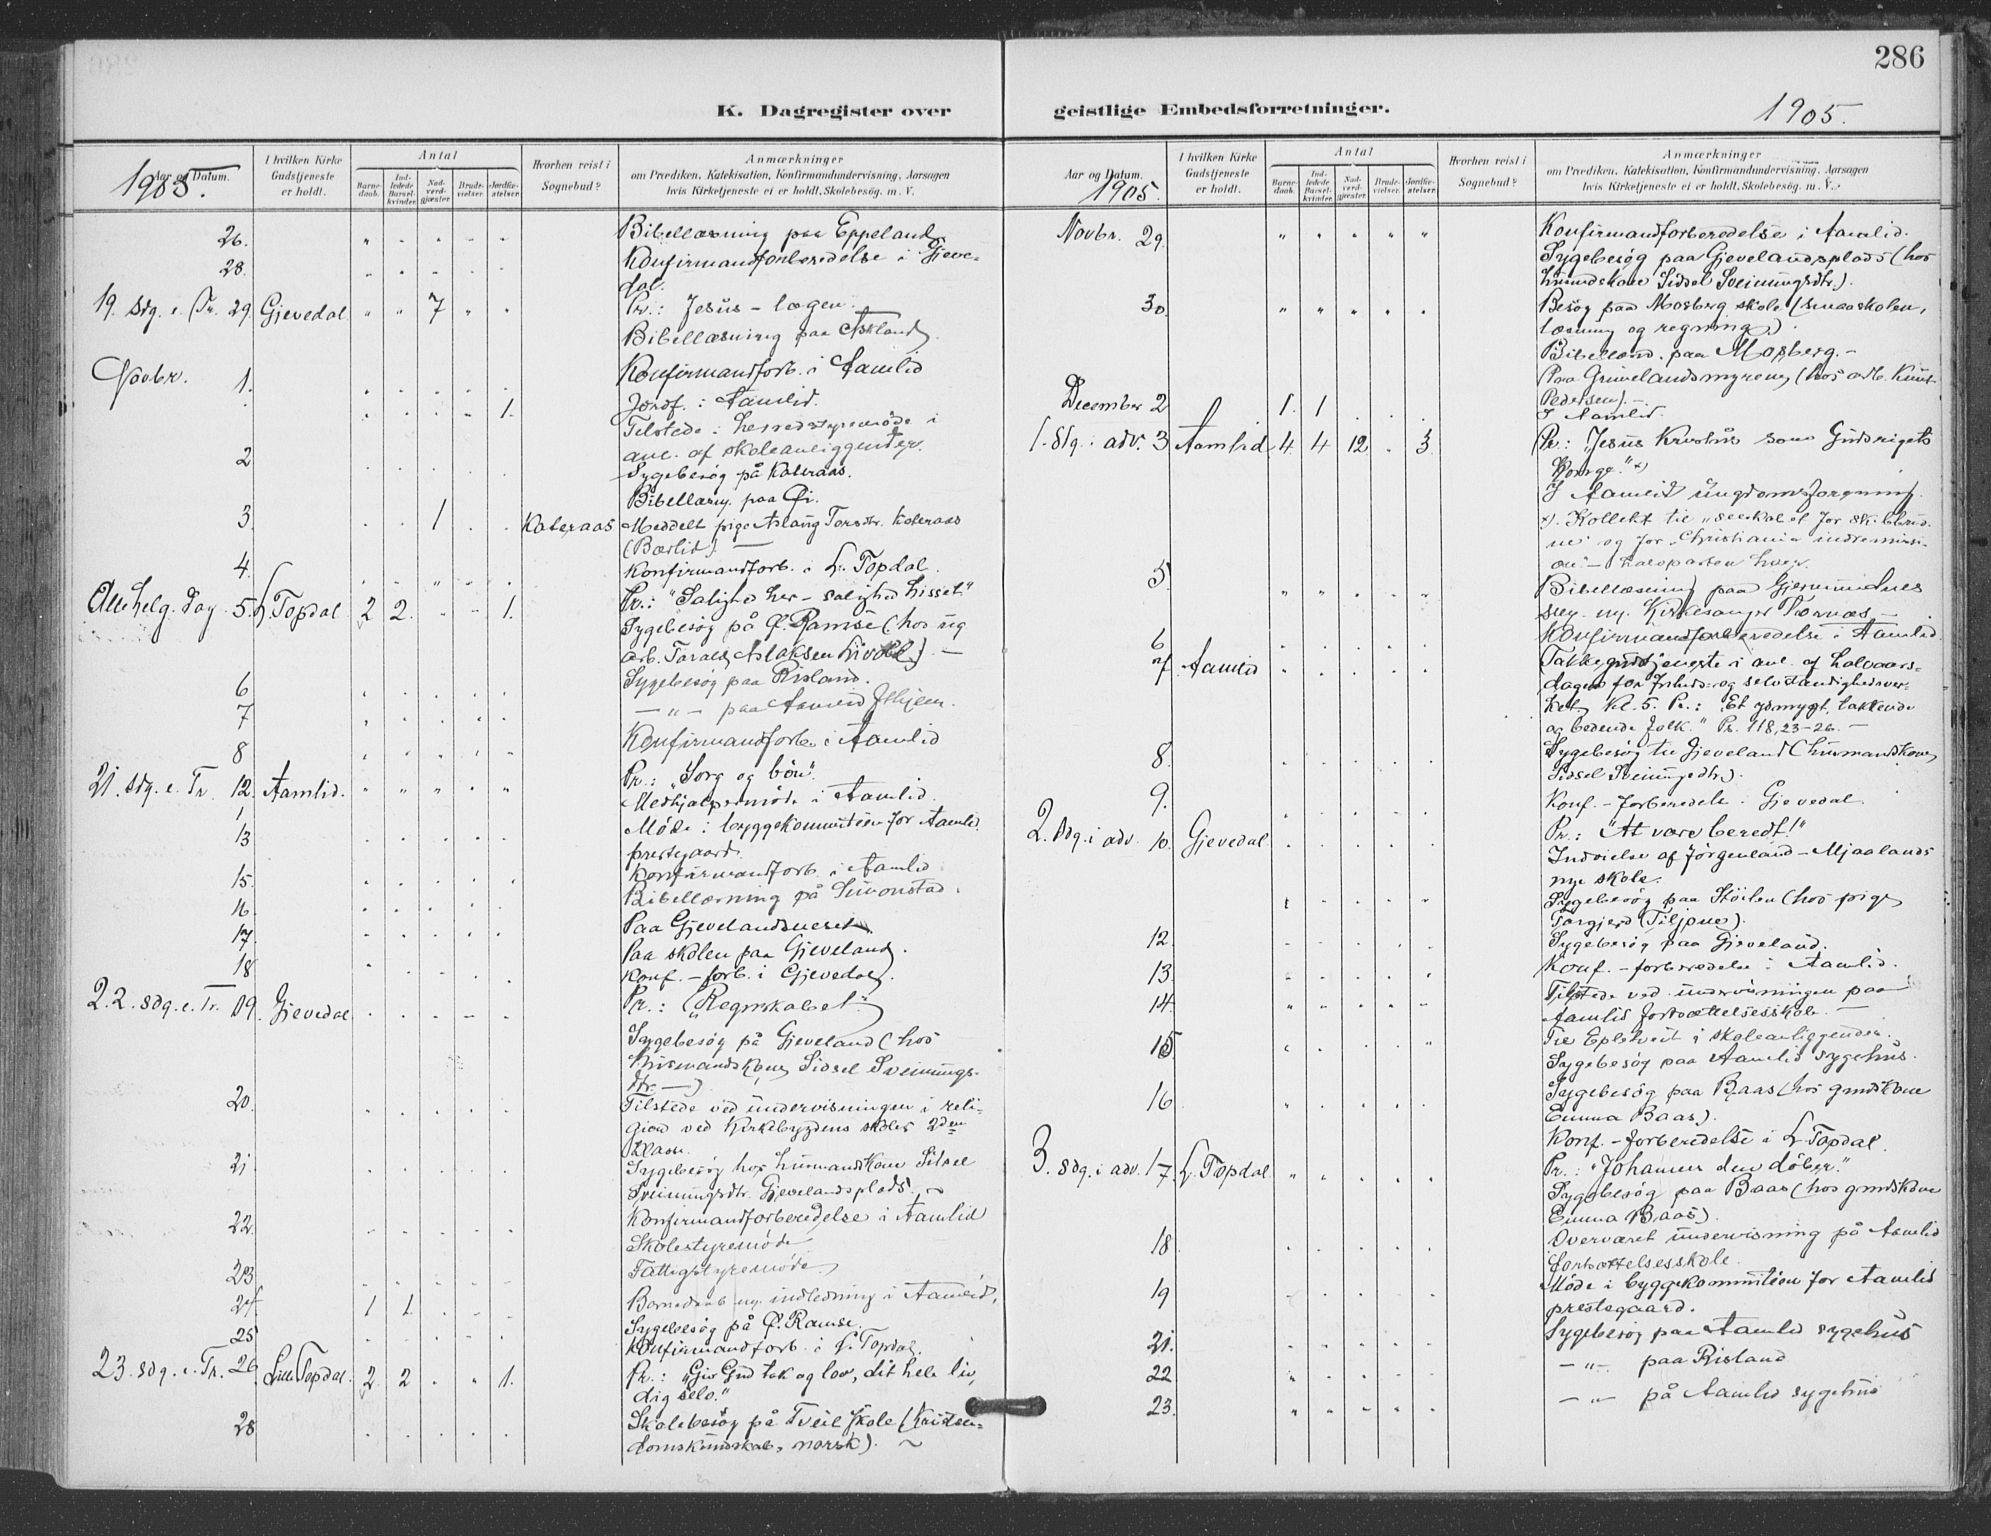 286
K. Dagregister over
1905.
Aar og Datum.
I hvilken Kirke Gudstjeneste er holdt.
Antal
Barnedaab. Indledede Barselkvinder. Nadverdgjæster Brudevielser. Jordfæstelser.
Hvorhen reist i Sognebud?
Anmærkninger
om Prædiken, Katekisation, Konfirmandundervisning, Aarsagen
hvis Kirketjeneste ei er holdt, Skolebesøg, m. V.
26. Bibellæsning paa Eppeland
28. Konfirmandforberedelse i Gjeve-
dal.
19. sdg. e. Tr. 29. Gjevedal " " 7 " " Pr.: Jesus - lægen.
Bibellæsning paa Askland.
Novbr. 1. Konfirmandforb. i Aamlid
1. Jordf. i Aamlid.
Tilstede i herredstyremöde i
anl. af skoleanliggender.
2 Sygebesög på Kateraas.
Bibellæsn. paa Öi.
3. 1 Kateraas Meddelt pige Aslaug Torsdtr. Kateraas
(Bærlid). —
4. Konfirmandforb. i L. Topdal.
Allehelg. dag 5. L. Topdal 2 2. " " 1. Pr.: "Salighed her - salighed hisset."
Sygebesög på Ö. Ramse (hos
arb. Tarald Aslaksen ). —
6 Sygebesög paa Risland.
7 — " — paa
8 Konfirmandforb. i Aamlid
21. sdg. e. Tr. 12. Aamlid. Pr.: "Sorg og bön".
Medhjælpermöde i Aamlid.
13 Möde i byggekomiteen for Aamlid
prestegaard.
15. Konfirmandforb. i Aamlid
16. Bibellæsning på Simonstad.
17. Paa Gjevelandsneset
18 Paa skolen paa Gjeveland.
Konf.-forb. i Gjevedal.
22. sdg. e. Tr. 19. Gjevedal Pr.: "Regnskabet."
Sygebesög på Gjeveland (hos
husmandskone Sidsel Sveinungs-
dtr. —).
20. Tilstede ved undervisningen i reli-
gion ved Kirkebygdens skoles 2den
klasse.
21 Sygebesög hos husmandskone Sidsel
Sveinungsdtr. Gjevelandsplads.
22. Konfirmandforberedelse i Aamlid
Skolestyremöde
23 Fattigstyremöde.
24 1 1. Barnedaab og indledning i Aamlid.
Sygebesög på Ö. Ramse.
25 Konfirmandforb. i L. Topdal.
23. sdg. e. Tr. 26 Lille Topdal. 2 2 " " 1. Pr.: "Giv Gud tak og lov, dit hele liv,
dig selv."
28 Skolebesög på Tveit skole (Kristen-
domskundskab, norsk). ~
geistlige Embedsforretninger.
1905.
Aar og Datum.
1905.
I hvilken Kirke Gudstjeneste er holdt.
Antal
Barnedaab. Indledede Barselkvinder. Nadverdgjæster Brudevielser. Jordfæstelser.
Hvorhen reist i Sognebud?
Anmærkninger
om Prædiken, Katekisation, Konfirmandundervisning, Aarsagen
hvis Kirketjeneste ei er holdt, Skolebesøg, m. V.
Novbr. 29. Konfirmandforberedelse i Aamlid.
Sygebesög paa Gjevelandsplads (hos
husmdskone Sidsel Sveinungsdtr.).
30. Besög paa Mosberg skole (smaaskolen,
læsning og regning).
Bibellæsn. paa Mosberg. -
Paa Grimelandsmyren (hos arb. Knut
Pedersen). -
December 2 1. 1 I Aamlid.
1. sdg. i adv. 3 Aamlid 4 4 12 . 3 Pr.: "Jesus Kristus som Gudsrigets
Konge." x)
I Aamlid ungdomsforening.
x). Kollekt til "selskabet for sk. blin-
ne" og for "Christiania indremissi-
on" - halvparten hver.
5 Bibellæsning paa Gjermundnes
Kirkesanger
6 Konfirmandforberedelse i Aamlid
7 Aamlid Takkegudstjeneste i anl. af halvaars-
dagen for friheds- og selvstændighedsver-
ket, Kl. 5. Pr.: "Et ydmygt, takkende
og bedende folk." Ps. 118, 23-26. -
8. Sygebesög til Gjeveland (husmandskone
Sidsel Sveinungsdtr).
9. Konf.-forberedels. Gjevedal.
2. sdg. i adv. 10. Gjevedal Pr.: "At være beredt!"
Indvielse af Jörgenland-Mjaalands
nye skole.
Sygebesög paa Stöilen (hos pige
Torgjerd ).
12. Sygebesög paa Gjeveland.
13. Konf.-forberedelse i Aamlid.
14 Tilstede ved undervisningen paa
Aamlid fortsættelsesskole. —
15 Til Eplekveit i skoleanliggender.
Sygebesög paa Aamlid sygehus.
16 Sygebesög paa Baas (hos gmdskone
Emma Baas).
Konf.-forberedelse i L. Topdal.
3. sdg. i adv. 17. L. Topdal Pr.: "Johannes den döber."
Sygebesög paa Baas (hos gmdskone
Emma Baas).
18 Overværet undervisning på Aamlid
fortsættelsesskole.
19 Möde i byggekommiteen for Aamlid
prestegaard.
21. Sygebesög paa Aamlid sygehus
22 — " — paa Risland
23. — " — på Aamlid sygehus